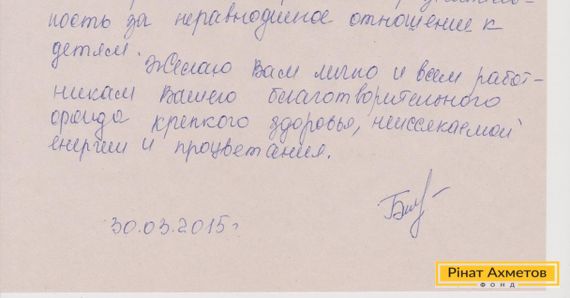 ность за неравнодушное отношение к
детям.
Желаю Вам лично и всем работ-
никам Вашего благотворительного
фонда крепкого здоровья, неиссякаемой
енергии и процветания.
30.03.2015г
Рінат Ахметов
ФОНД